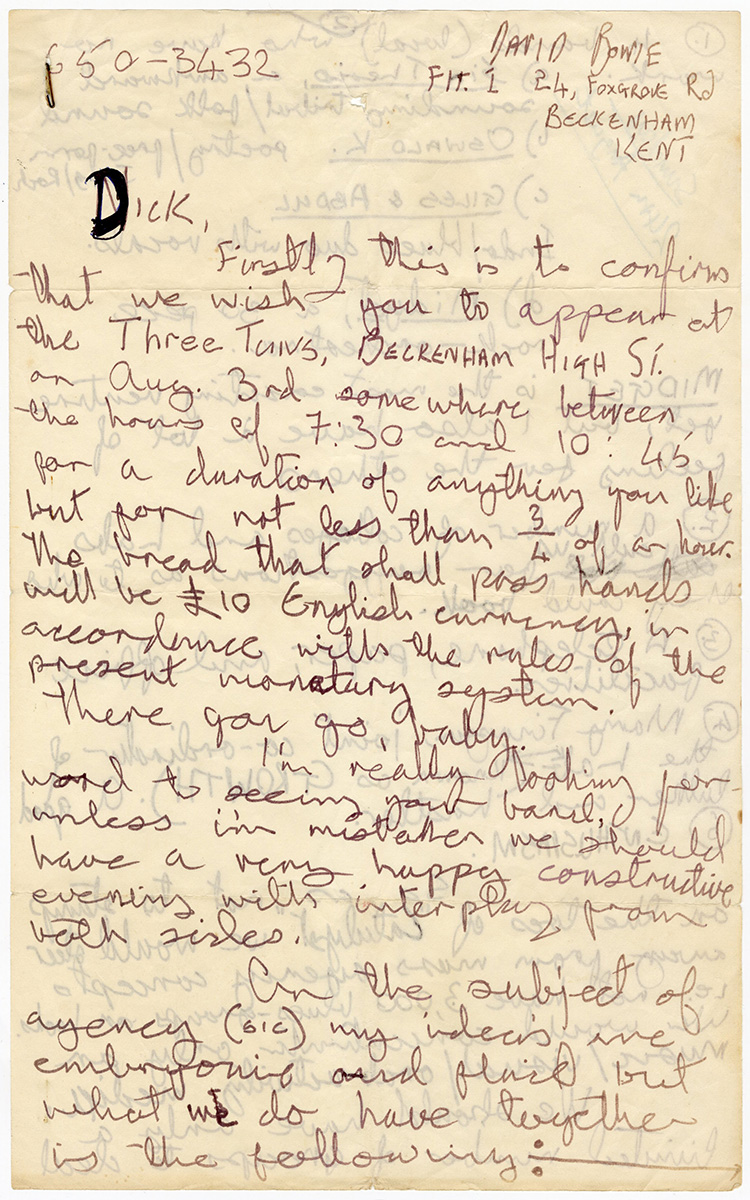 650-3432
DAVID BOWIE
Flt. 1 24, FOXGROVE Rd
BECKENHAM
KENT
DICK,
Firstly this is to confirm
that we wish you to appear at
the THREE TUNS, BECKENHAM HIGH ST.
on Aug. 3rd somewhere between
the hours of 7:30 and 10:45
for a duration of anything you like
but for not less than 3/4 of an hour.
The bread that shall pass hands
will be £10 English currency, in
accordance with the rules of the
present monatary system.
There you go, baby.
I'm really looking for-
ward to seeing your band,
unless i'm mistaken we should
have a very happy constructive
evening with interplay from
both sides.
On the subject of
agency (sic) my idea's are
embryonic and fluid but
what we do have together
is the following: